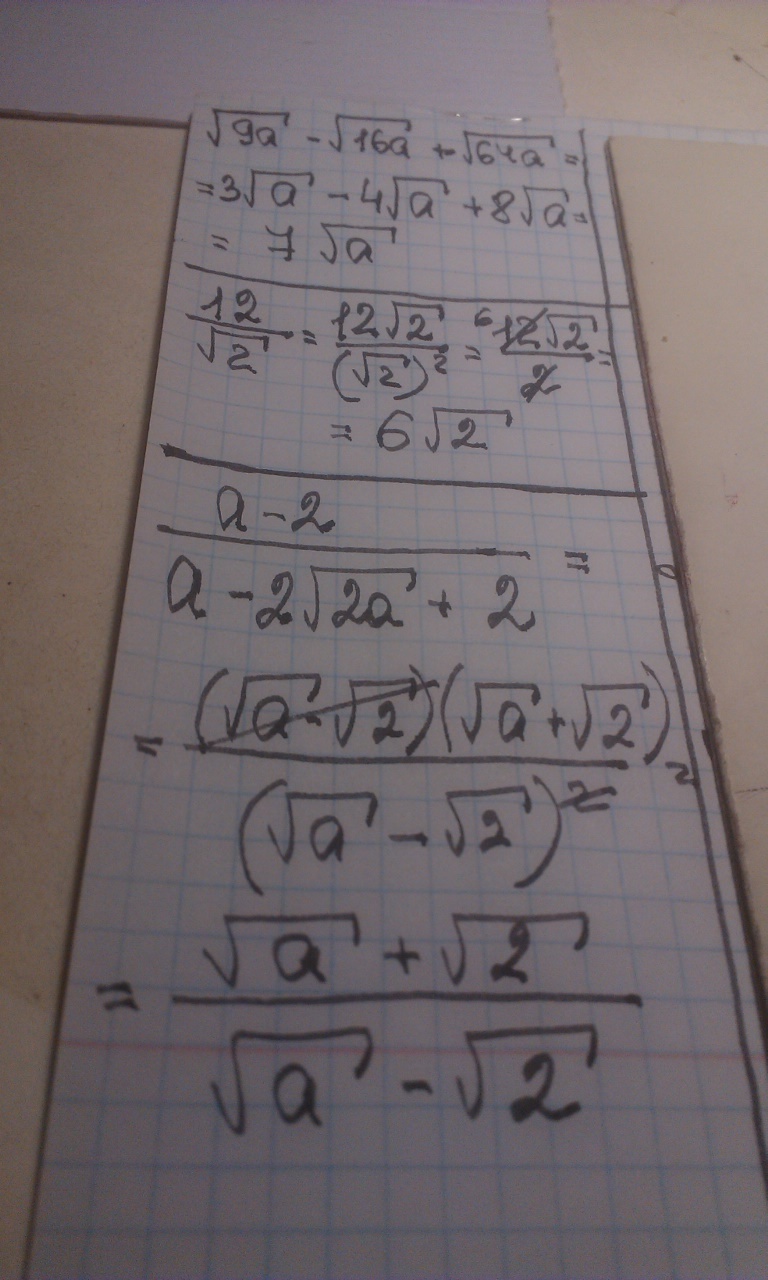 √9a - √16a + √64a =
= 3√a - 4√a + 8√a =
= 7√a
12/√2 = 12√2/(√2)² = ⁶12√2/2 =
= 6√2
a - 2
a - 2√2a + 2 =
= (√a - √2)(√a + √2) =
(√a - √2)²
= √a + √2
√a - √2